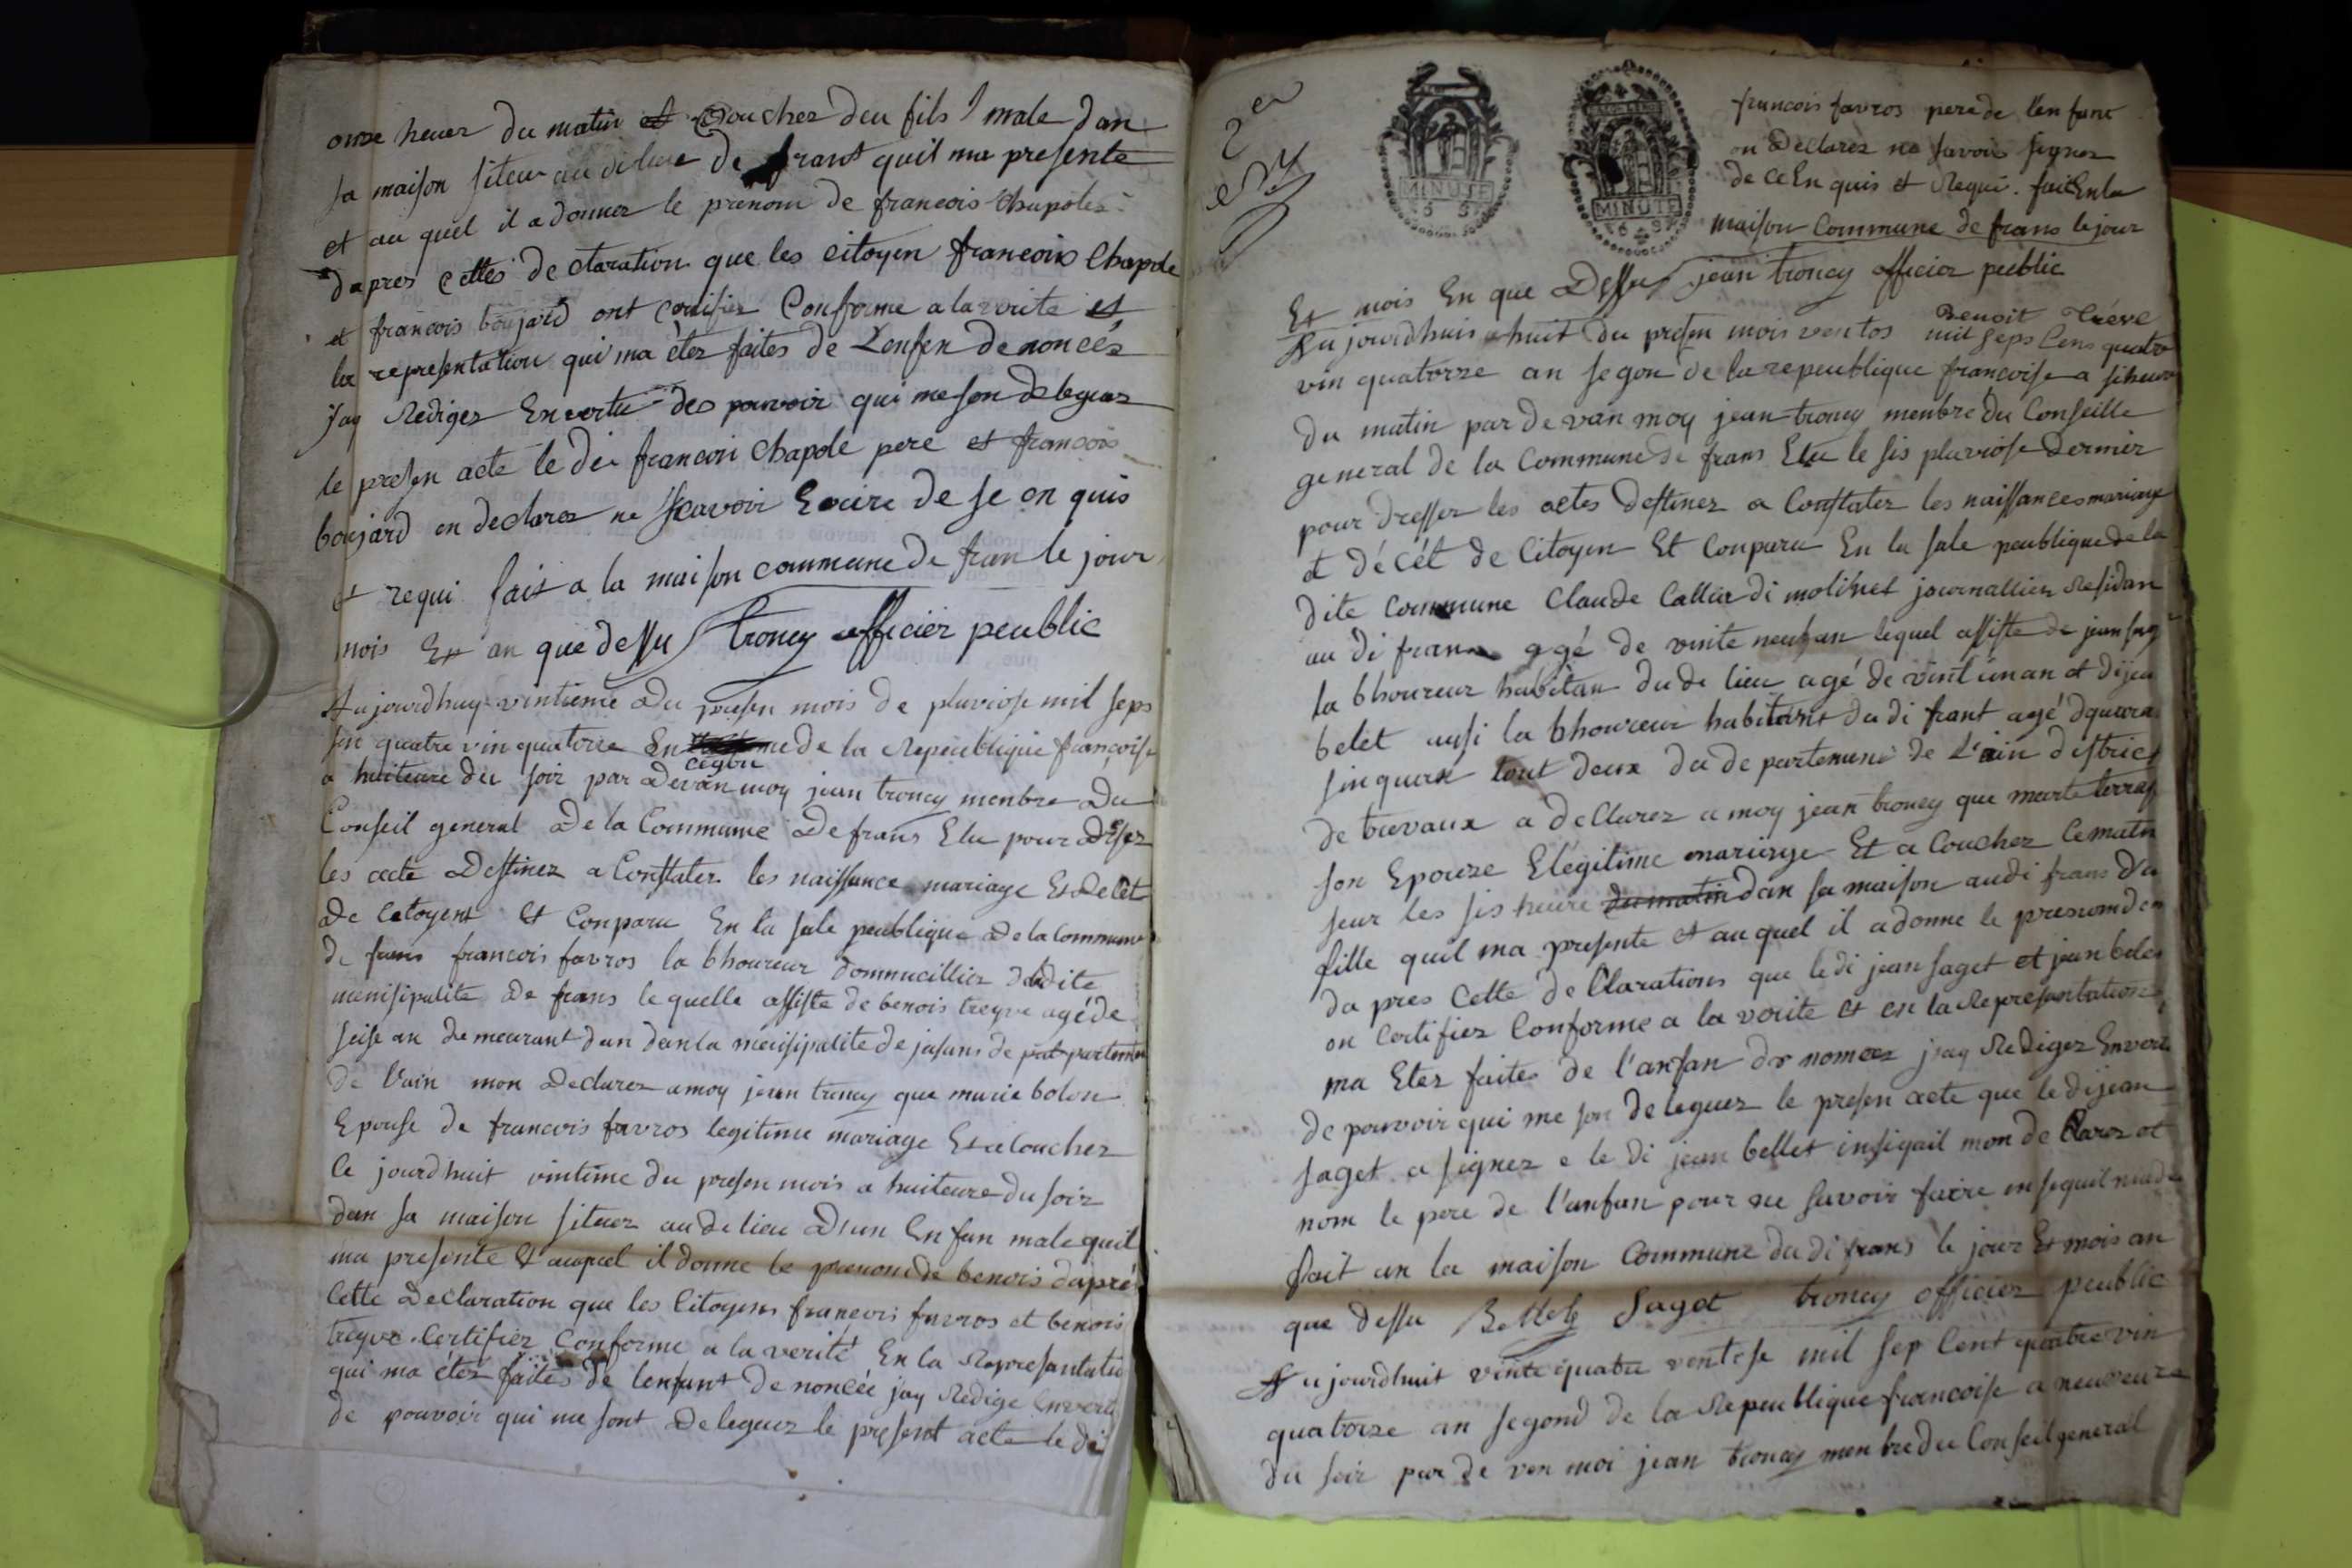 onze heuer du matin et Coucher deu fils / male dan
sa maison siteur au di lieu de frant quil ma presente
et au quel il a donner le prenom de francois Chapoles
dapres cettes de claration que les citoyen francois Chapole
et francois boujard ont certifier Conforme a la verite et
la representation qui ma êter faites de Lenfen denoncés
jay Rediger En vertu des pouvoir qui me son deleguer
le presen acte le di francoi Chapole pere et francois
boujard on declarer ne sçavoir Ecrire de se en quis
et requi fait a la maison commune de fran le jour
mois Et an que dessu troncy officier peublic
Aujourdhuy vintieme du presen mois de pluviose mil seps
sen quatre vin quatorze En de la Republique françoise
a huiteure du soir par devan moy jean troncy menbre du
Conseil general de la Commune de frans Elu pour
les acte destinez a Constater les naissance mariage Et decet
de Citoyent Et Conparu En la sale peublique de la Commune
de frans francois favros la bhoureur dommucillier dudite
menisipalite de frans lequelle assiste de benois treyve agé de
seise an demeurant dan la menisipalite de jasans de partemen
de l'ain mon declarez a moy jean troncy que marie bolon
Epouse de francois favros legitime mariage Et a Coucher
Ce jourdhuit vintime du presen mois a huiteure du soir
dan sa maison situer au de lieu dun En fan male quil
ma presente Et auquel il donne le prenom de benois dapré
Cette declaration que les Citoyens francois favros et benois
treyve Certifier Conforme a la verité En la Representatio
qui ma éter faites de lenfant denoncée jay Redige En vert
de pouvoir qui me sont deleguez le present acte le di
2
francois favros pere de lenfant
on declarez ne savoir signer
de ce En quis et Requi. fait En la
maison Commune de frans le jour
Et mois En que dessu jean troncy officier peublic
MINUTE
MINUTE
Benoit Tréve
Aujourdhuis huit du presen mois ventos mil seps Cens quatre
vin quatorze an segon de la repeublique francoise a siheur
du matin par devan moy jean troncy menbre du Conseille
general de la Commune de frans Elu le sis pluviose dernier
pour dresser les actes destinez a Constater les naissances mariage
et décét de Citoyen Et Conparu En la sale peublique de la
dite Commune Claude Callier di molinet journallier Residan
au di frans agé de vinte neuf an lequel assiste de jean sag
la bhoureur habitan du de lieu agé de vint un an et di jean
belet ausi la bhoureur habitant du di frant agé
sinquen tout deux du de partement de L'ain district
de trevaux a declarez a moy jean troncy que marte terras
son Epouze Elegitime mariage Et a Coucher Ce matin
seur les sis heure du matin dan sa maison au di frans du
fille quil ma presente et au quel il a donne le prenom de
da pres Cette de Clarations que le di jean saget et jean belet
on Certifier Conforme a la verite Et en la Representations
ma Eter faites de l'anfan de nomer jay Rediger En vertu
de pouvoir qui me son deleguer le presen acte que le di jean
saget a signez e le di jean bellet insi quil mon de Clarer et
nom le pere de l'anfan pour ne savoir faire
fait an la maison Commune du di frans le jour Et mois an
que dessu Bellet Saget troncy officier peublic
Aujourdhuit vinte quatre ventose mil sep Cent quatre vin
quatorze an segond de la Repeublique francoise a neuveure
du soir par de ven moi jean troncy menbre du Conseil general